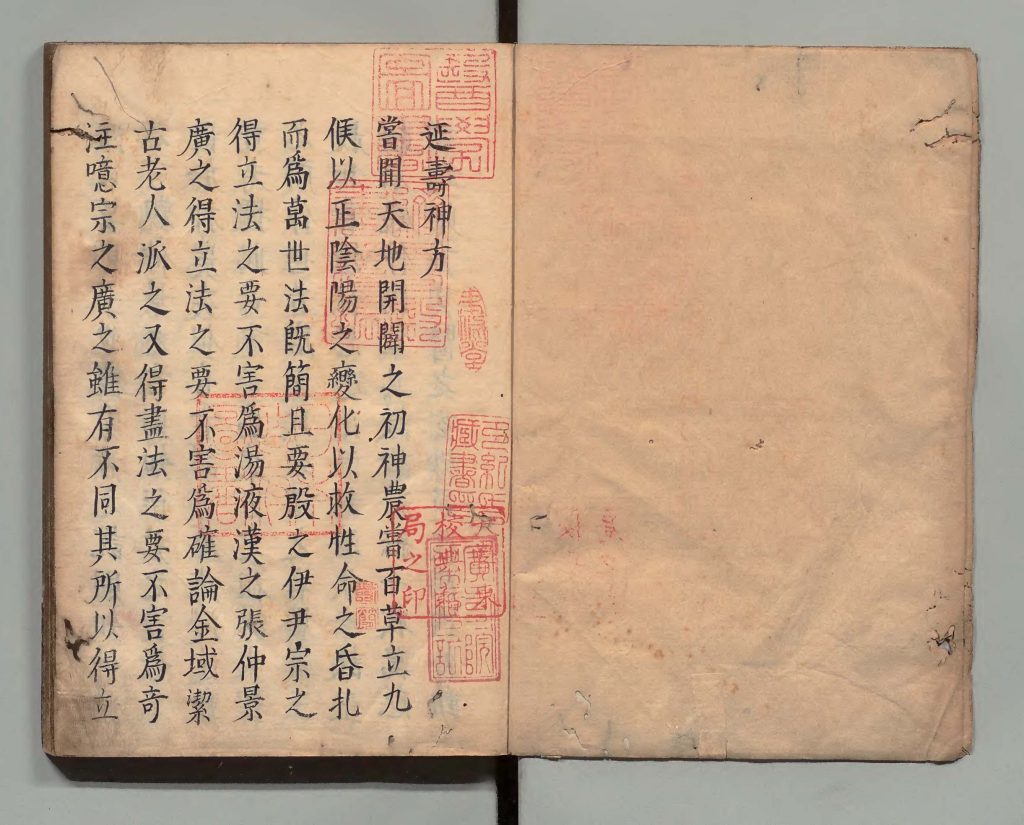 延壽神方
嘗聞天地開闢之初神農嘗百草立九
候以正陰陽之變化以救性命之昏札
而爲萬世法旣簡且要殷之伊尹宗之
得立法之要不害爲湯液漢之張仲景
廣之得立法之要不害爲確論金域潔
古老人派之又得盡法之要不害爲奇
注噫宗之廣之雖有不同其所以得立
局之印